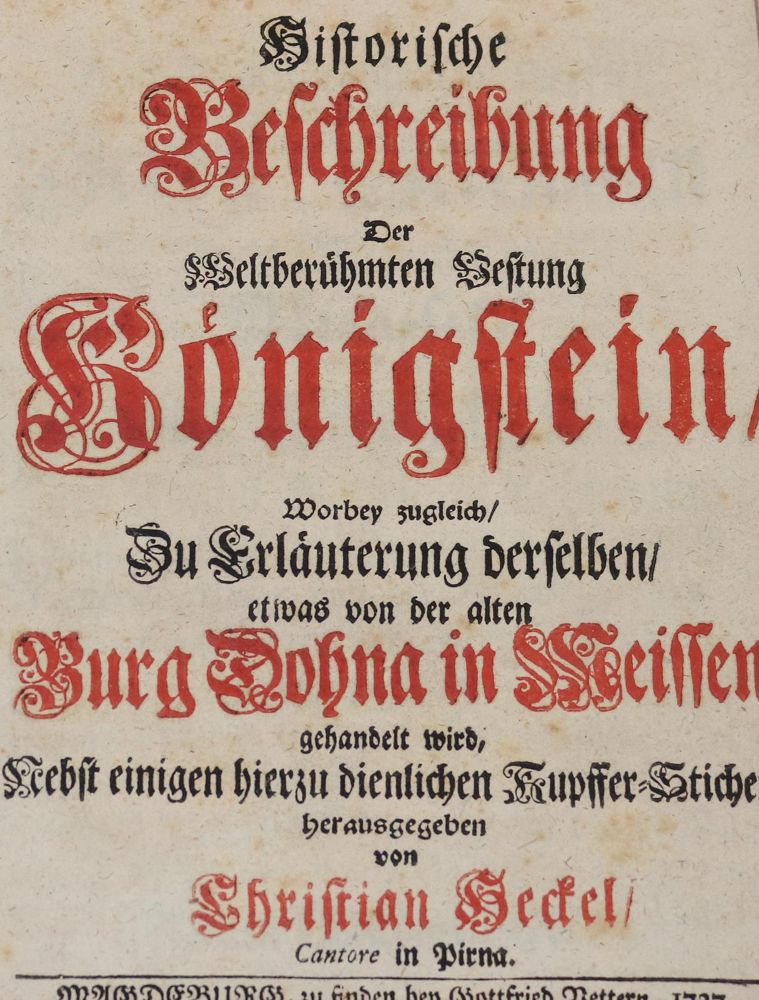 Historische
Beschreibung
Der
Weltberühmten Vestung
Königstein/
Worbey zugleich/
Zu Erläuterung derselben/
etwas von der alten
Burg Dohna in Meissen
gehandelt wird,
Nebst einigen hierzu dienlichen Kupffer-Stiche
herausgegeben
von
Christian Heckel/
Cantore in Pirna.
MAGDEBURG, zu finden bey Gottfried Vettern